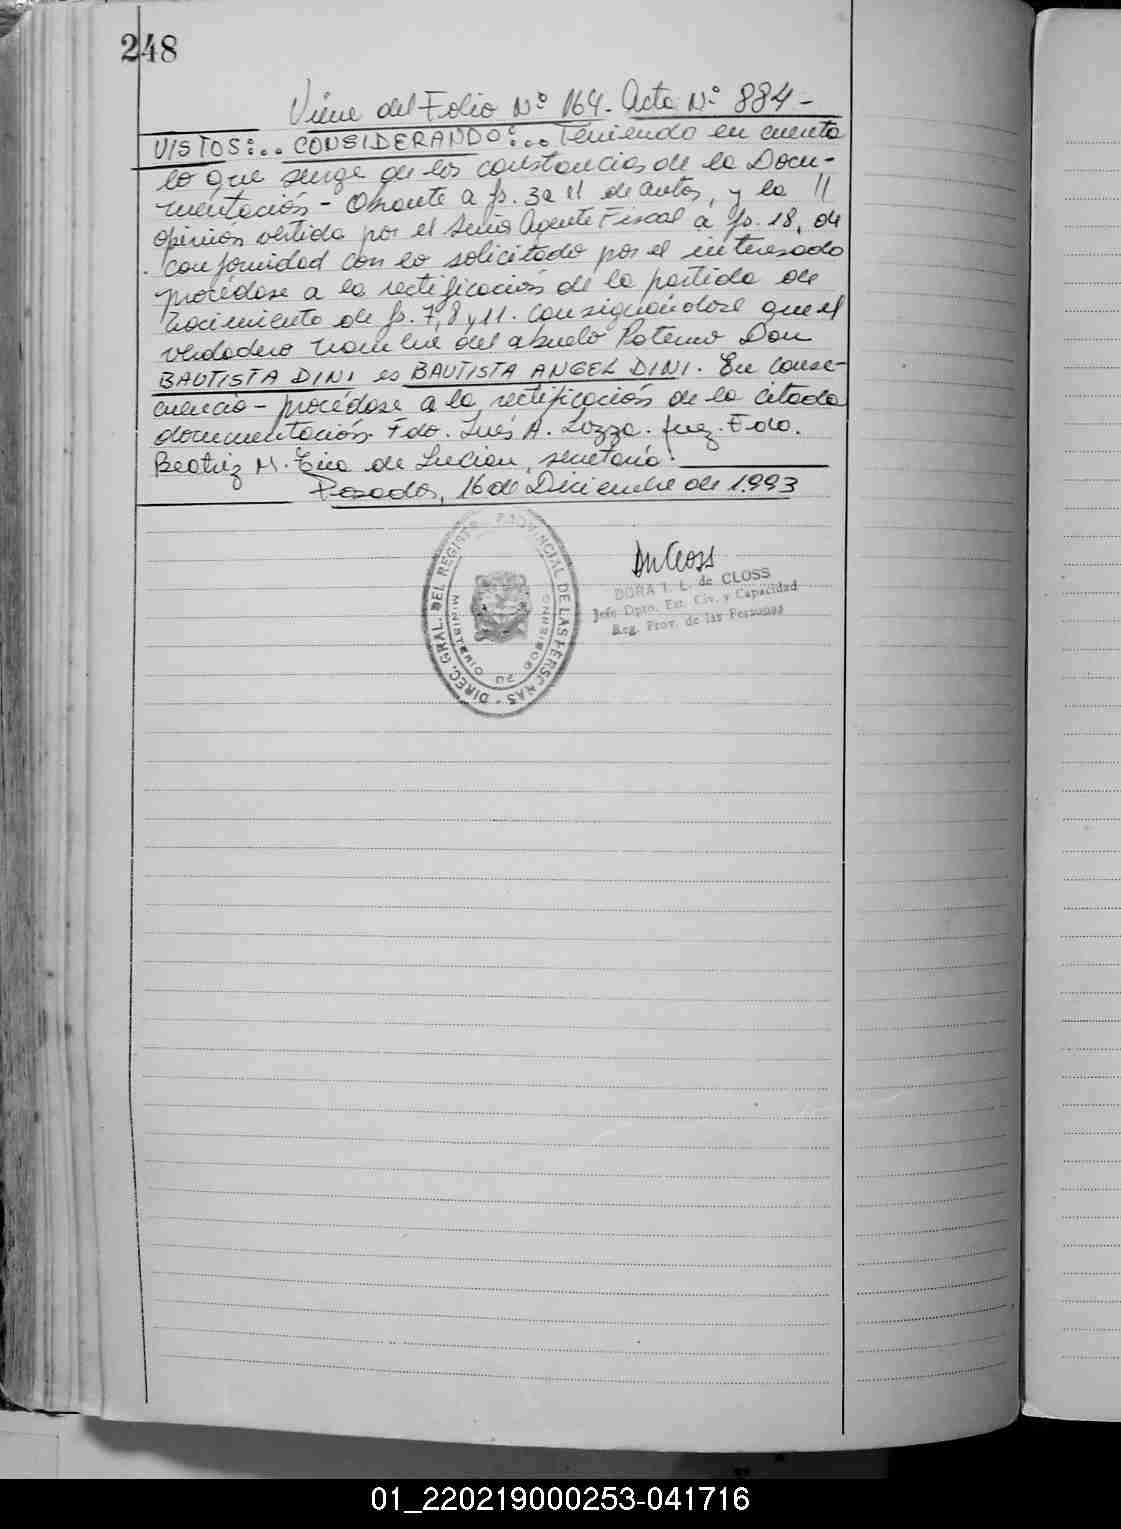 248
Viene del Folio Nº 164. Acta Nº 884-
VISTOS:.. CONSIDERANDO:... Teniendo en cuenta
lo que surge de las constancias de la Docu-
mentación - Obrante a fs. 3 a 11 de autos, y la //
opinión vertida por el Señor Agente Fiscal a fs. 18, de
conformidad con lo solicitado por el interesado
procédase a la rectificación de la partida de
nacimiento de fs. 7, 8 y 11. Consignándose que el
verdadero nombre del abuelo Paterno Don
BAUTISTA DINI es BAUTISTA ANGEL DINI. En conse-
cuencia - procédase a la rectificación de la citada
documentación. Fdo. Luis A. Lozza. Juez. Fdo.
Beatriz M. de Lucian, secretaria.
Posadas, 16 de Diciembre de 1.993
DIREC. GRAL. DEL REGISTR. PROVINCIAL DE LAS PERSONAS
MINISTERIO DE GOBIERNO
DORA I. L. de CLOSS
Jefe Dpto. Est. Civ. y Capacidad
Reg. Prov. de las Personas
01_220219000253-041716